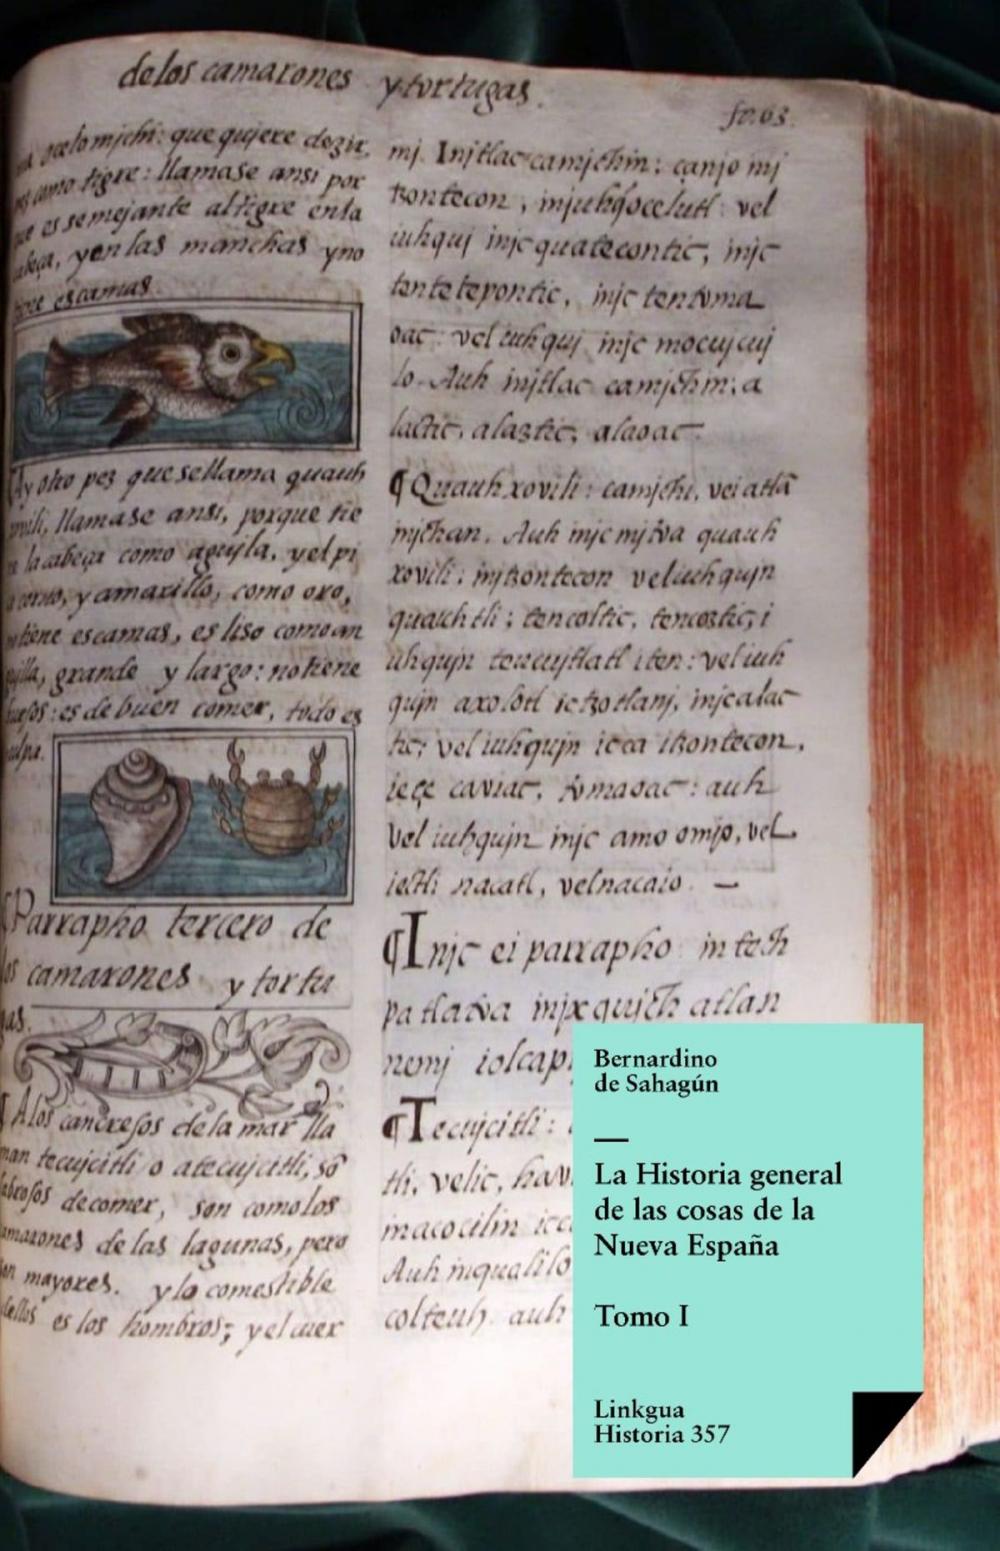 de los camarones y tortugas.
fo. 63.
ocelomichi: que quiere dezir,
como tigre: llamase ansi por
que es semejante al tigre en la
cabeça, y en las manchas y no
tiene escamas.
Ay otro pez que se llama quauh
xouili, llamase ansi, porque tie
ne la cabeça como aguila, y el pi
co coruo, y amarillo, como oro,
no tiene escamas, es liso como an
guilla, grande y largo: no tiene
huesos: es de buen comer, todo es
pulpa.
¶Parrapho tercero de
los camarones y tortu
gas.
¶A los cancrejos de la mar lla
man tecujcitli o atecujcitli, sō
sabrosos de comer, son como los
camarones de las lagunas, pero
son mayores. y lo comestible
dellos es los hombros; y el cuer
mj. Injtlac camjchin: canjo mj
tzontecon, injuhqocelutl: vel
iuhquj injc quatecontic, injc
tentetepontic, injc tentoma
oac: vel iuhquj injc mocujcuj
lo. Auh injtlac camjchin: a
lactic, alaztic, alaoac.
¶Quauhxovili: camjchi, vei atlā
mjchan. Auh injc mjtoa quauh
xovili: injtzontecon veliuhqujn
quauhtli; tencoltic, tencoztic; i
uhqujn teucujtlatl iten: vel iuh
qujn axolotl ic tzotlanj, injc alac
tic; vel iuhqujn icca itzontecon,
iece caviac, tomaoac: auh
vel iuhqujn injc amo omjo, vel
iectli nacatl, vel nacaio. —
¶Injc ei parrapho intech
patlatoa injxqujch atlan
nemj iolcap
¶Tecujcitli:
tli, velic, hav
macocilin icc
Auh inqualilo
colteuh. auh
Bernardino
de Sahagún
—
La Historia general
de las cosas de la
Nueva España
Tomo I
Linkgua
Historia 357